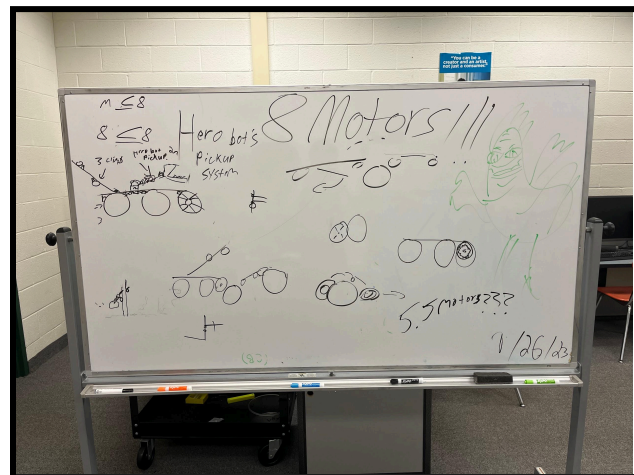 "You can be a
creator and an artist,
not just a consumer."
m ≤ 8
8 ≤ 8
Hero bot's
Pickup
System
8 Motors!!!
3
Hero bot
Pickup
5.5 Motors???
/26/23